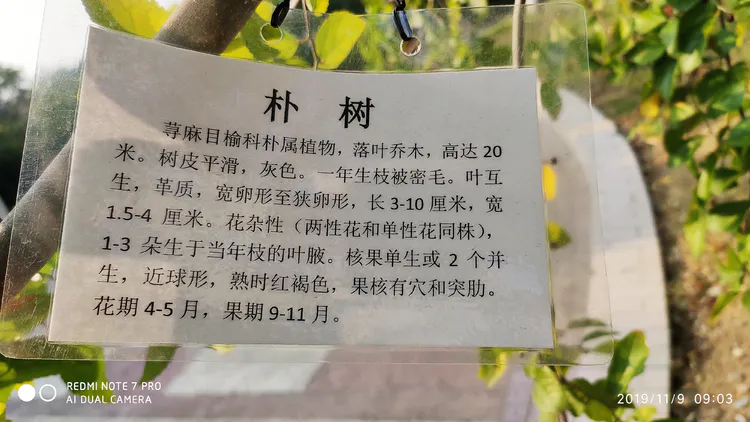 朴 树
荨麻目榆科朴属植物，落叶乔木，高达 20
米。树皮平滑，灰色。一年生枝被密毛。叶互
生，革质，宽卵形至狭卵形，长 3-10 厘米，宽
1.5-4 厘米。花杂性（两性花和单性花同株），
1-3 朵生于当年枝的叶腋。核果单生或 2 个并
生，近球形，熟时红褐色，果核有穴和突肋。
花期 4-5 月，果期 9-11 月。
REDMI NOTE 7 PRO
AI DUAL CAMERA
2019/11/9 09:03